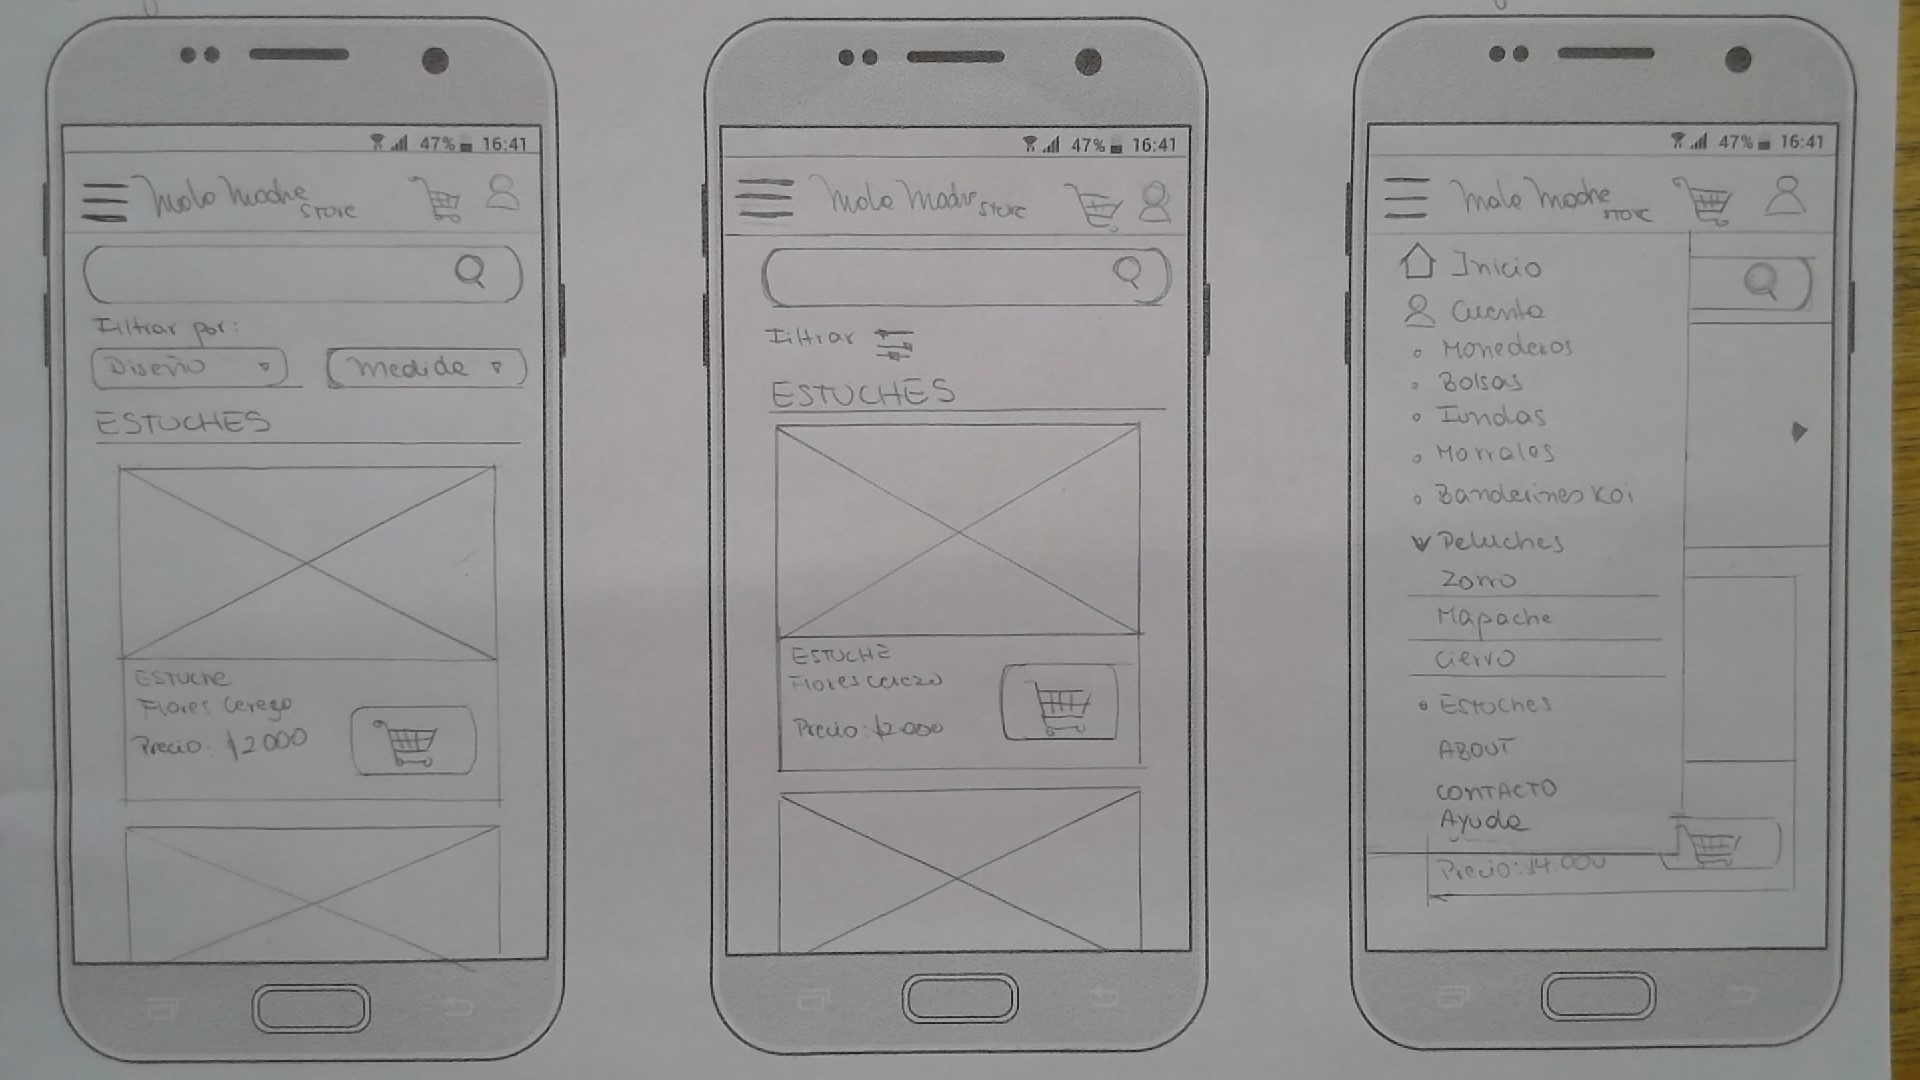 47% 16:41
Malo Madre STORE
Filtrar por:
Diseño
Medida
ESTUCHES
ESTUCHE
Flores Cerezo
Precio: $2000
47% 16:41
Malo Madre STORE
Filtrar
ESTUCHES
ESTUCHE
Flores cerezo
Precio: $2000
47% 16:41
Malo Madre STORE
Inicio
Cuenta
Monederos
Bolsas
Fundas
Morrales
Banderines Koi
Peluches
Zorro
Mapache
Ciervo
Estuches
ABOUT
CONTACTO
Ayuda
Precio: $4.000